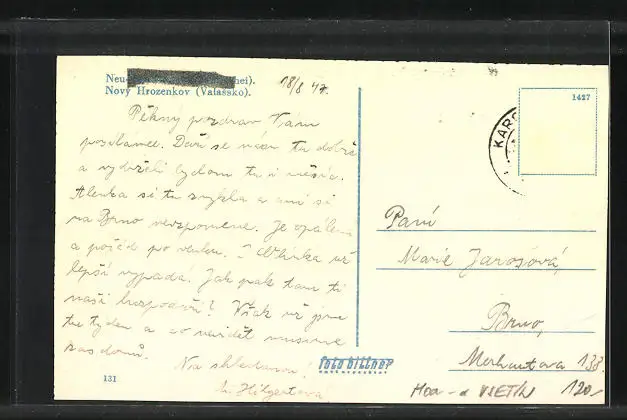 Neu chei).
Nový Hrozenkov (Valašsko).
18/8 47.
Pěkný pozdrav Vám
posíláme. Daří se nám tu dobře
a vydrželi bychom tu i měsíc.
Alenka si tu zvykla a ani si
na Brno nevzpomene. Je opálená
a pořád po venku. I už
lepší vypadá. Jak pak tam ti
naši hospodaří? Však už jsme
tu týden a co nevidět musíme
zas domů. Na shledanou
Hilgertová
131
foto bittner
1427
KARO
Paní
Marie Jarošová,
Brno,
Merhautova 138.
Hoa - VSETÍN 120,-